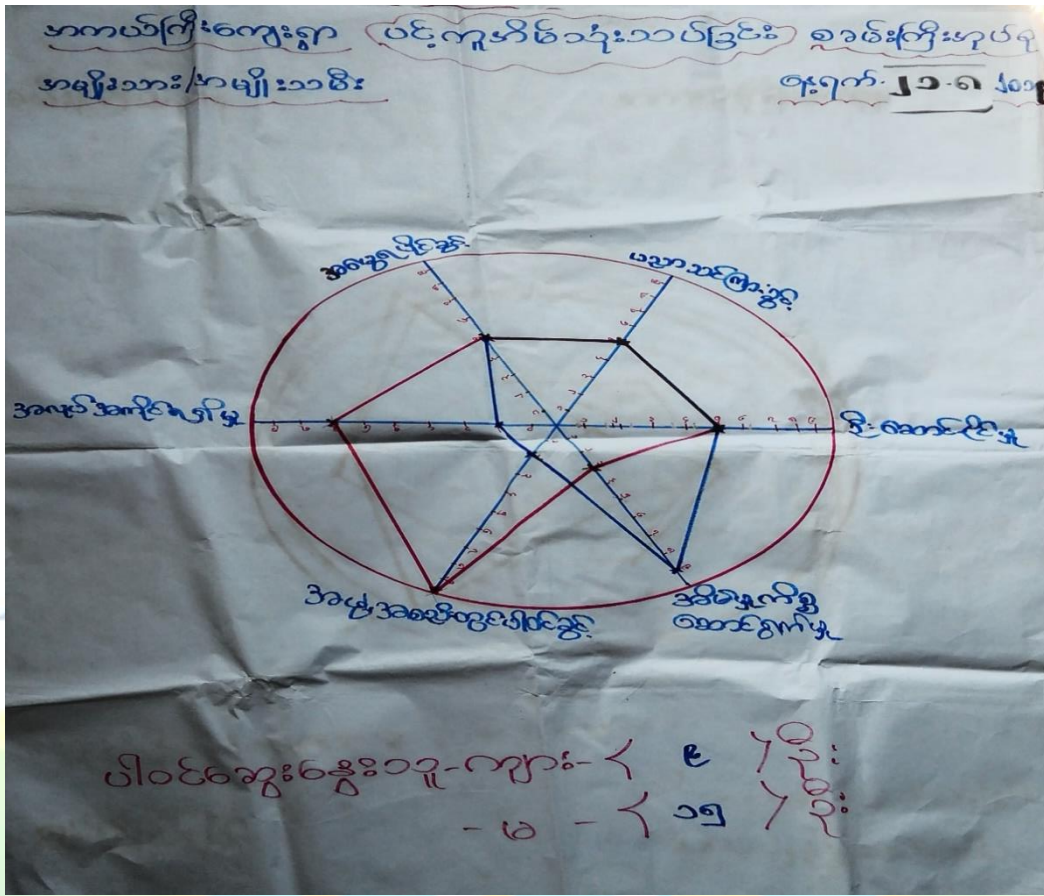 အကယ်ကြီးကျေးရွာ ပင့်ကူအိမ်သုံးသပ်ခြင်း
အမျိုးသား/အမျိုးသမီး နေ့ရက်-၂၁.၈
အမွေရပိုင်ခွင့်
ပညာသင်ကြားခွင့်
အလုပ်အကိုင်ရရှိမှု
ဦးဆောင်ပိုင်းမှု
အဖွဲ့အစည်းတွင်ပါဝင်ခွင့်
အိမ်မှုကိစ္စ
ဆောင်ရွက်မှု
ပါဝင်ဆွေးနွေးသူ-ကျား- ( ၉ ) ဦး
- မ - ( ၁၅ ) ဦး